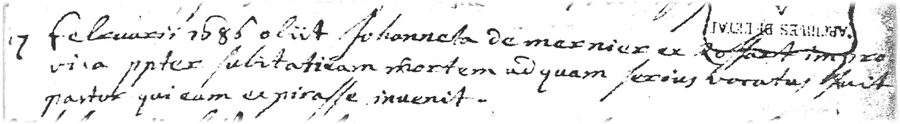 17 februarii 1686 obiit Johanneta de mernier ex hossart impro
visa ppter subitaneam mortem ad quam serius vocatus fuit
pastor qui eam expirasse invenit.
ARCHIVES DE L'ETAT